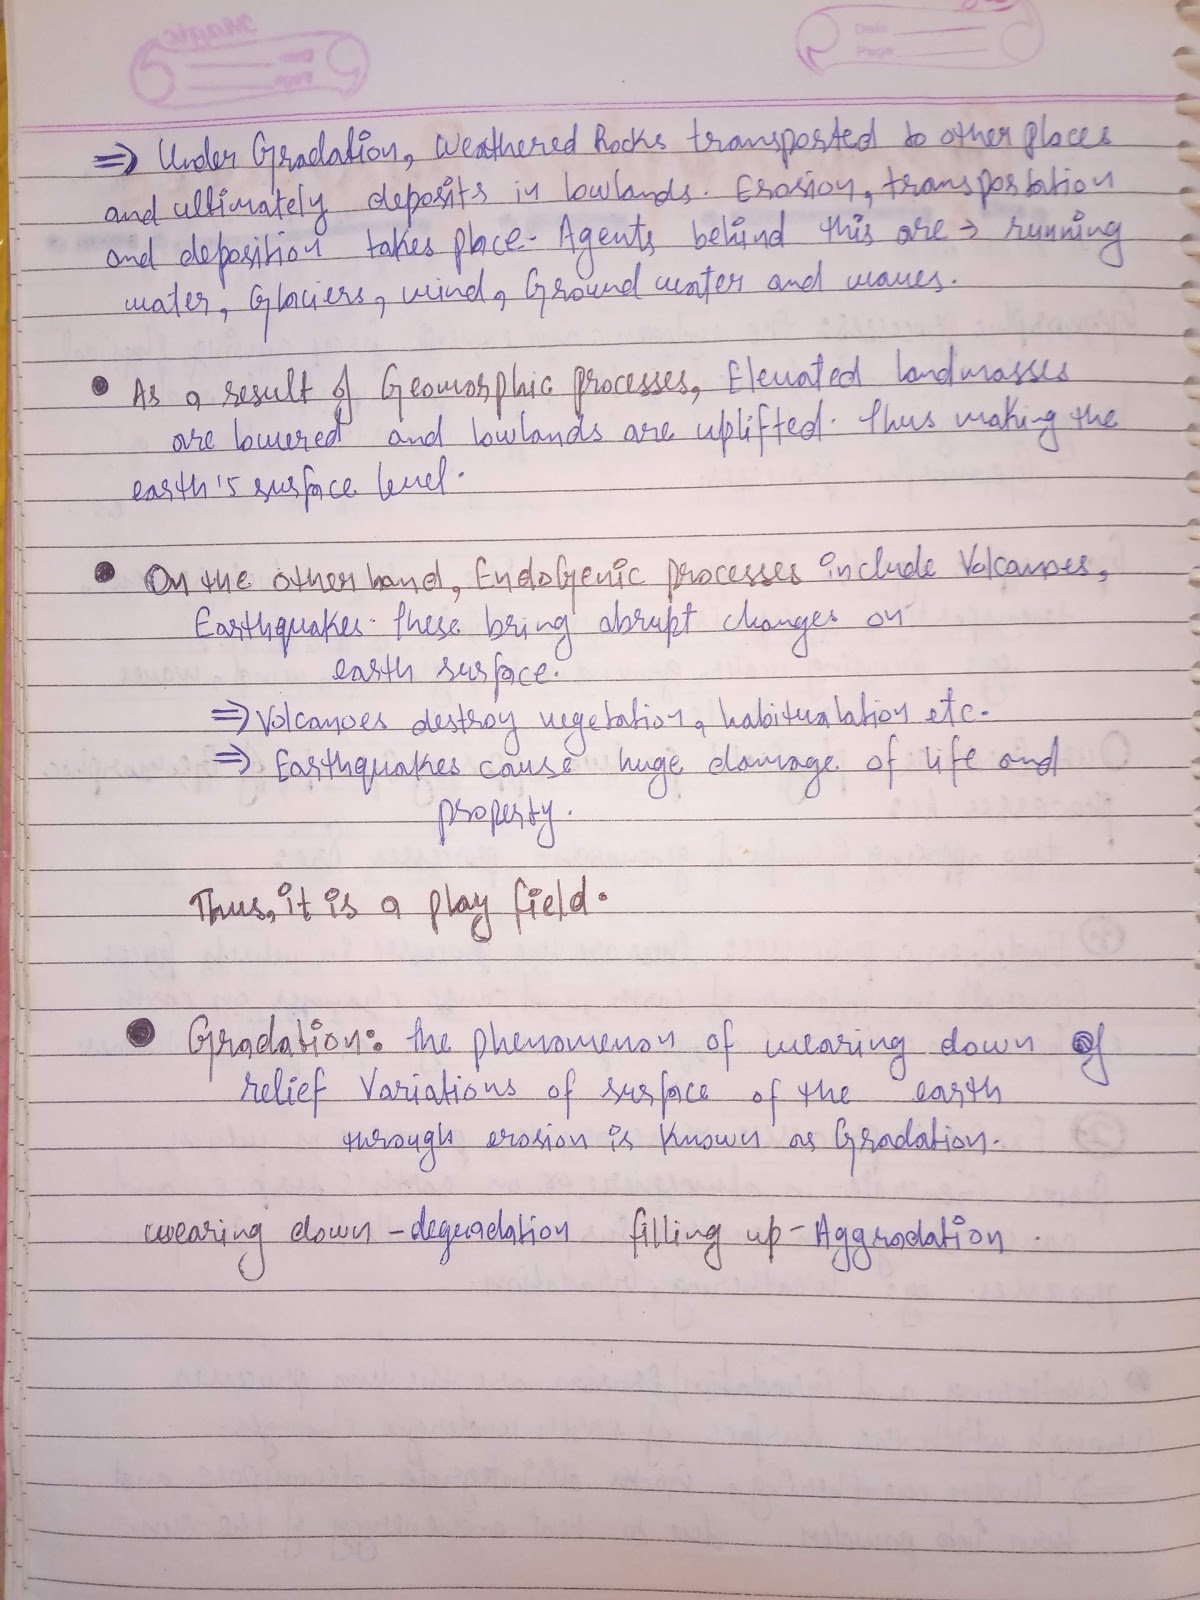 Date
Page
⇒ Under Gradation, Weathered Rocks transported to other places
and ultimately deposits in lowlands. Erosion, transportation
and deposition takes place. Agents behind this are → running
water, Glaciers, wind, Ground water and waves.
• As a result of Geomorphic processes, Elevated landmasses
are lowered and lowlands are uplifted. Thus making the
earth's surface level.
• On the other hand, Endogenic processes include Volcanoes,
Earthquakes. these bring abrupt changes on
earth surface.
⇒ Volcanoes destroy vegetation, habitualation etc.
⇒ Earthquakes cause huge damage of life and
property.
Thus, it is a play field.
• Gradation: the phenomenon of wearing down of
relief Variations of surface of the earth
through erosion is known as Gradation.
wearing down - degradation filling up - Aggradation.